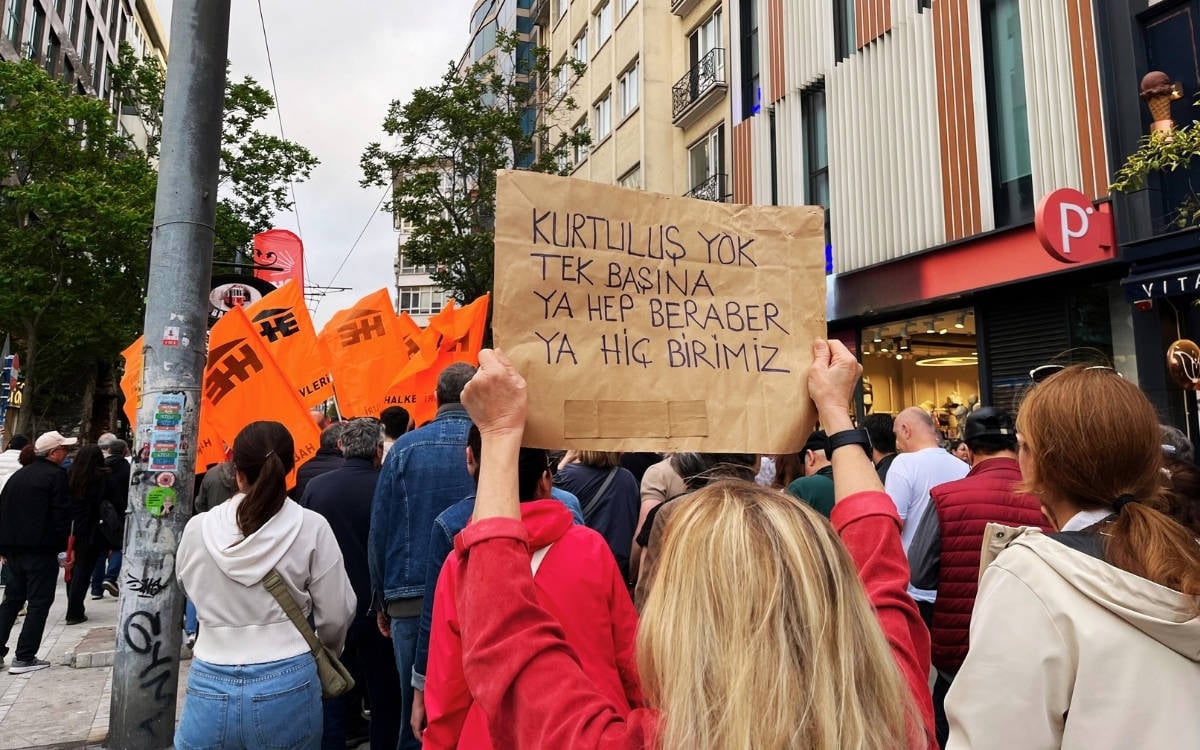 KURTULUŞ YOK
TEK BAŞINA
YA HEP BERABER
YA HİÇ BİRİMİZ
HE
HE
HE
VLERİ
HALKE
P
VITA